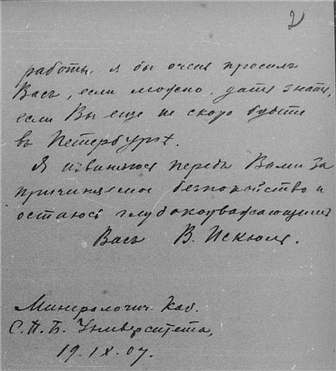 2
работы, я бы очень просилъ
Васъ, если можно, дать знать,
если Вы еще не скоро будете
въ Петербургѣ.
Я извиняюсь передъ Вами за
причиняемое безпокойство и
остаюсь глубокоуважающимъ
Васъ В. Искюль.
Минералогич. Каб.
С.П.Б. Университета,
19.IX.07.